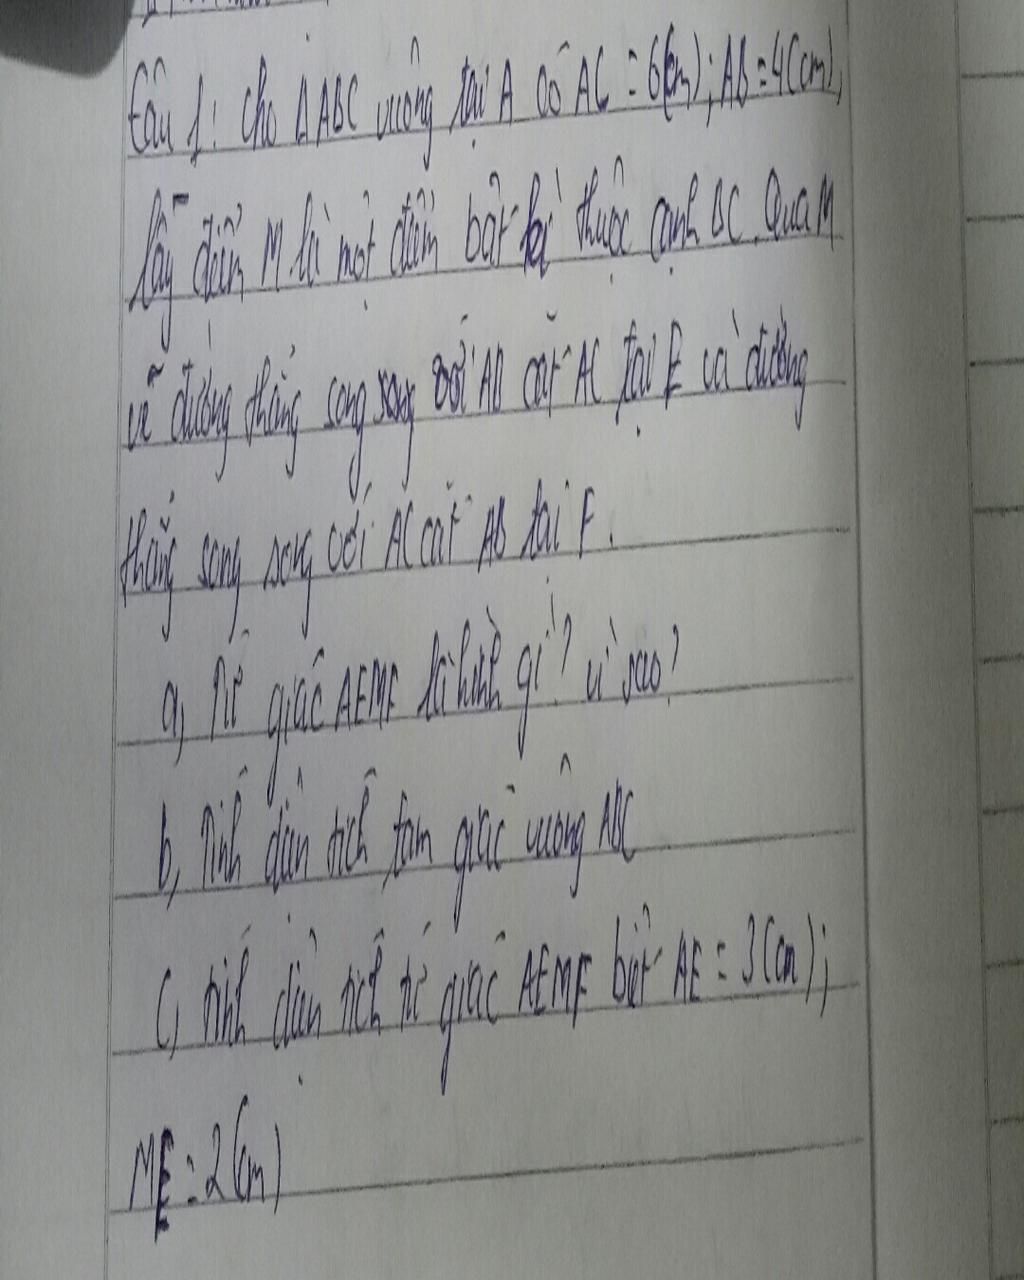 Câu 1: Cho ΔABC vuông tại A có AC = 6(cm); AB = 4(cm),
lấy điểm M là một điểm bất kì thuộc cạnh BC. Qua M
vẽ đường thẳng song song với AB cắt AC tại E và đường
thẳng song song với AC cắt AB tại F.
a, Tứ giác AEMF là hình gì? vì sao?
b, Tính diện tích tam giác vuông ABC
c, tính diện tích tứ giác AEMF biết AE = 3(cm);
ME = 2(cm)